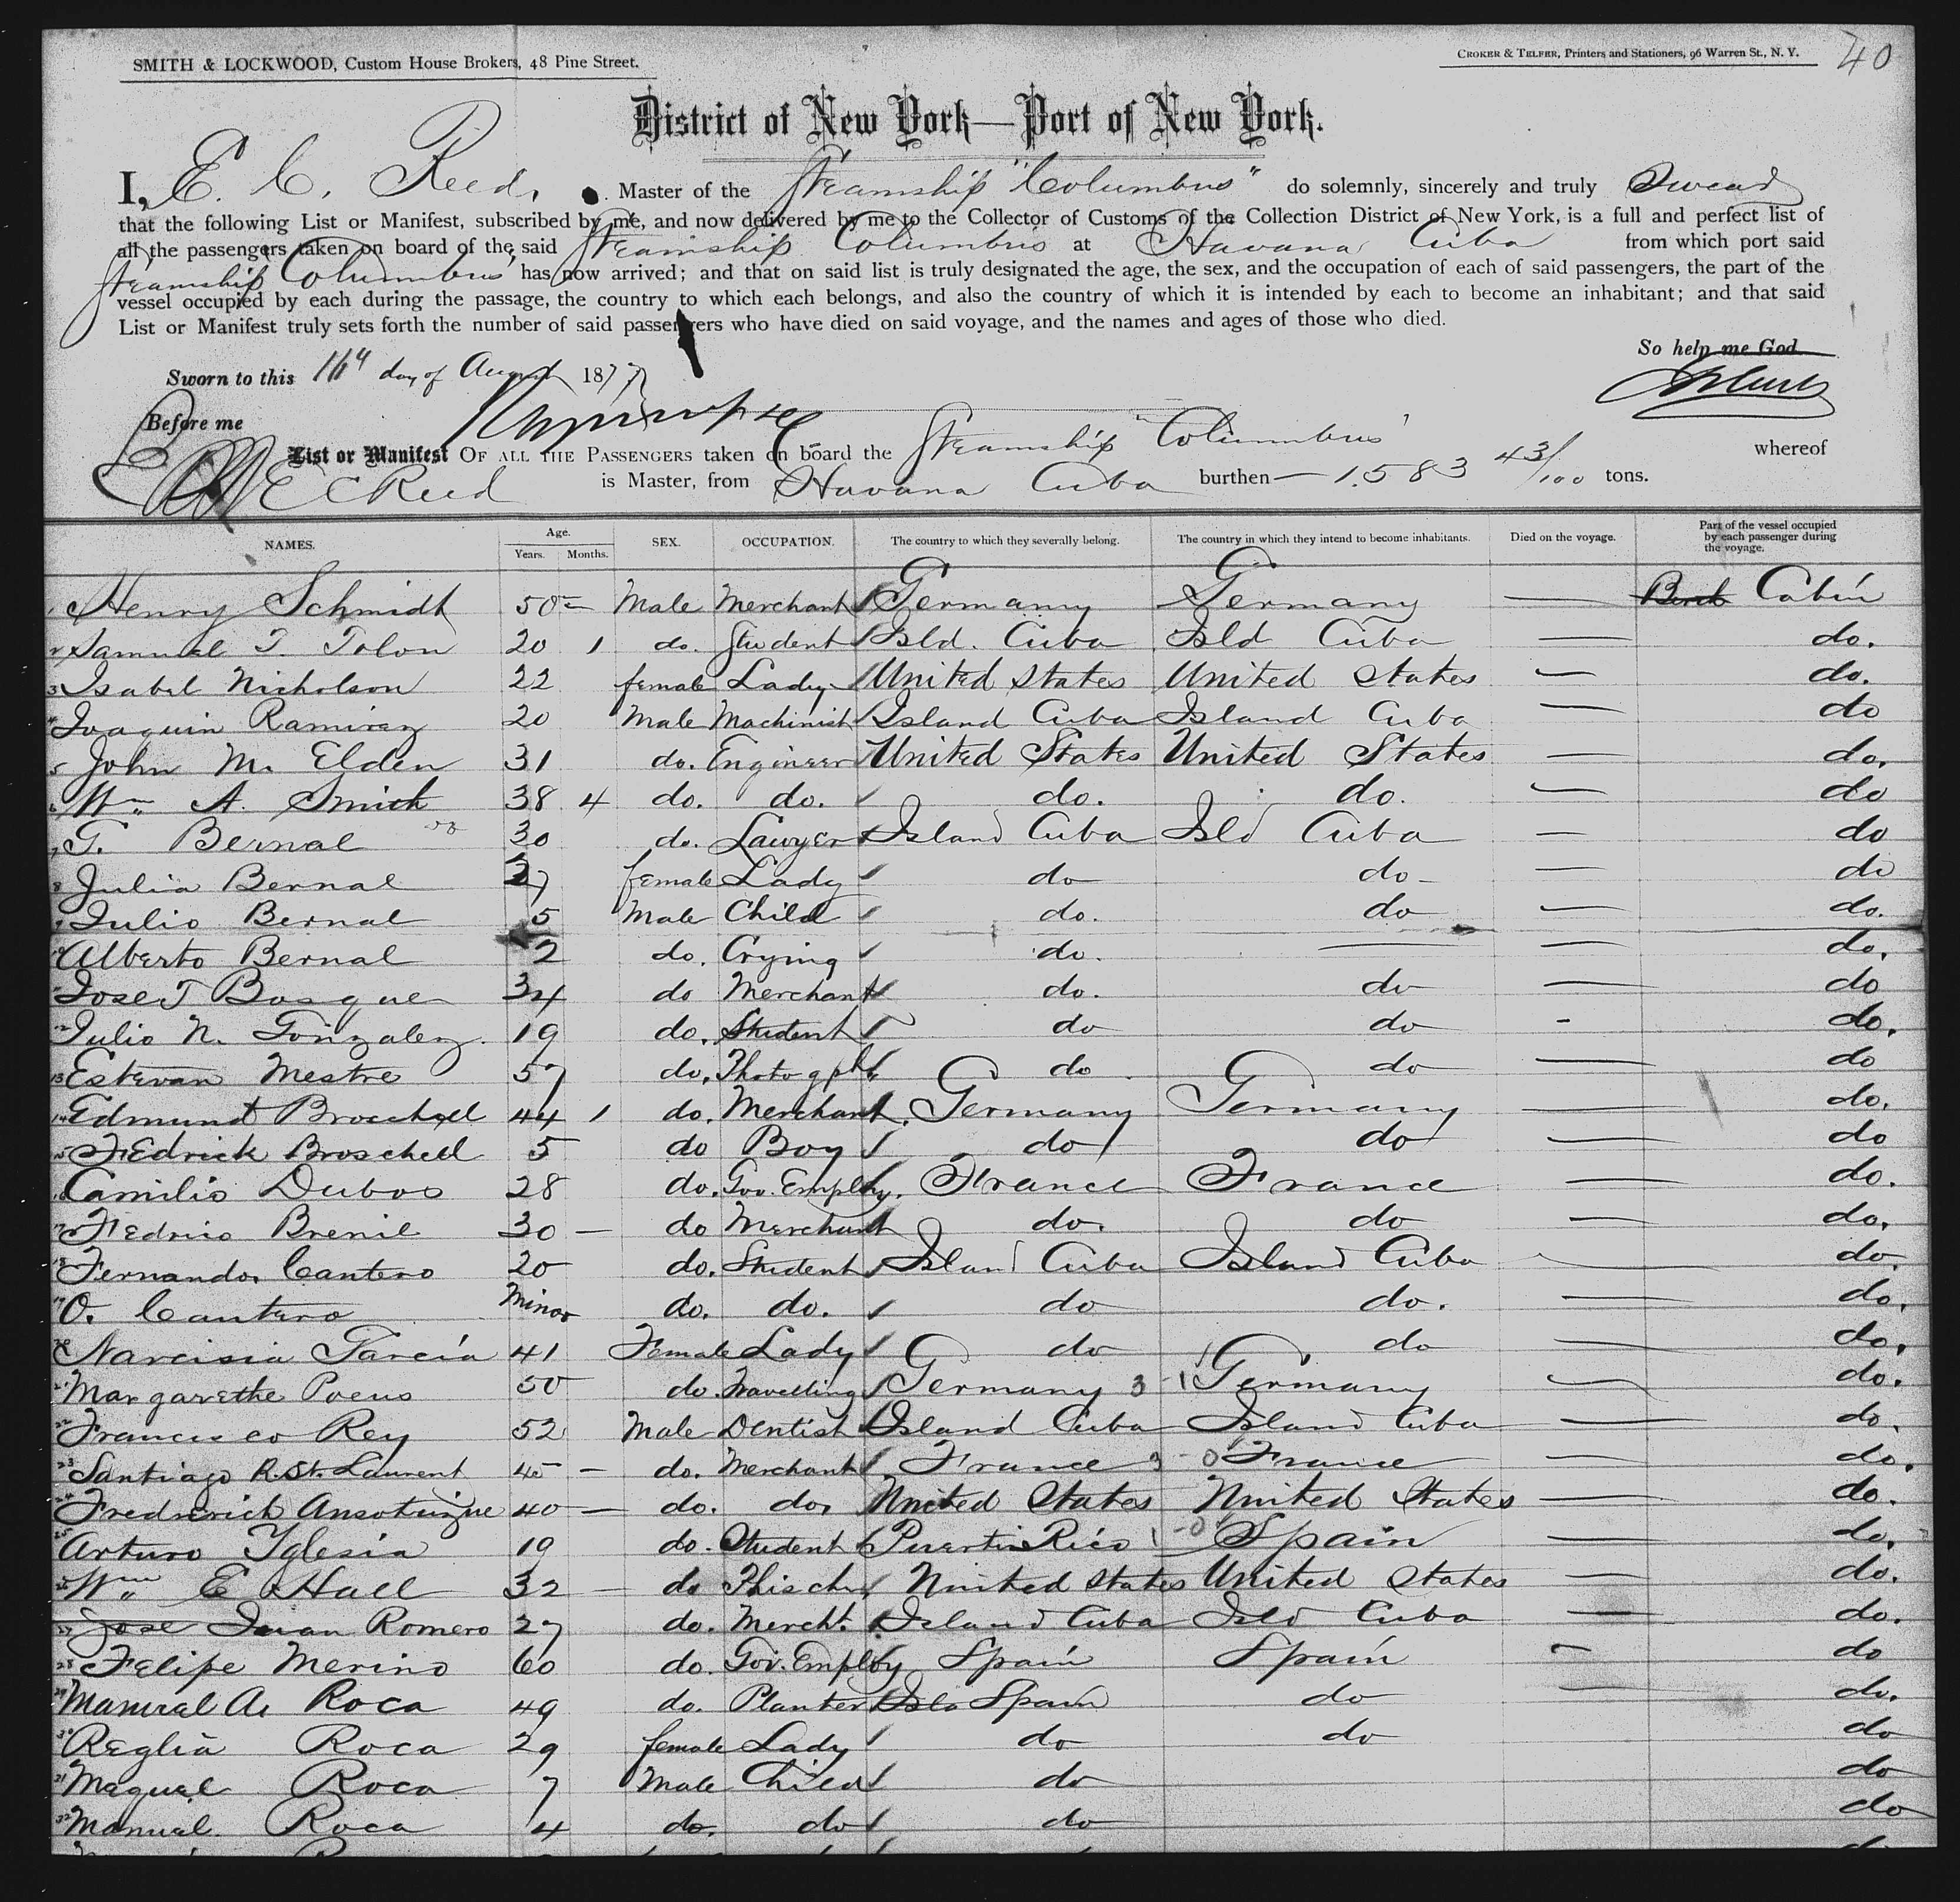 SMITH & LOCKWOOD, Custom House Brokers, 48 Pine Street.
CROKER & TELFER, Printers and Stationers, 96 Warren St., N. Y.
40
District of New York—Port of New York.
I, E. C. Reed, Master of the Steamship "Columbus" do solemnly, sincerely and truly Swear
that the following List or Manifest, subscribed by me, and now delivered by me to the Collector of Customs of the Collection District of New York, is a full and perfect list of
all the passengers taken on board of the said Steamship Columbus at Havana Cuba from which port said
Steamship Columbus has now arrived; and that on said list is truly designated the age, the sex, and the occupation of each of said passengers, the part of the
vessel occupied by each during the passage, the country to which each belongs, and also the country of which it is intended by each to become an inhabitant; and that said
List or Manifest truly sets forth the number of said passengers who have died on said voyage, and the names and ages of those who died.
So help me God
Sworn to this day of August 1877
Before me
List or Manifest OF ALL THE PASSENGERS taken on board the Steamship "Columbus" whereof
E C Reed is Master, from Havana Cuba burthen — 1.583 43/100 tons.
NAMES. Age. Years. Months. SEX. OCCUPATION. The country to which they severally belong. The country in which they intend to become inhabitants. Died on the voyage. Part of the vessel occupied by each passenger during the voyage.
1 Henry Schmidt 50 — Male Merchant Germany Germany — Cabin
2 Samuel T. Tolon 20 1 do. Student Isld. Cuba Isld Cuba — do.
3 Isabel Nicholson 22 female Lady United States United States — do.
4 Joaquin Ramirez 20 Male Machinist Island Cuba Island Cuba — do
5 John M. Elden 31 do. Engineer United States United States — do.
6 Wm A. Smith 38 4 do. do. do. do. — do
7 T. Bernal 30 do. Lawyer Island Cuba Isld Cuba — do
8 Julia Bernal 27 female Lady do do — do
9 Julio Bernal 5 Male Child do. do — do.
10 Alberto Bernal 2 do. Crying do. — — do.
11 Jose T Bosque 34 do Merchant do. do — do
12 Julio N. Gonzalez. 19 do. Student do do - do.
13 Estevan Mestre 57 do. Photogpht. do do — do
14 Edmund Broschell 44 1 do. Merchant. Germany Germany — do.
15 Fredrick Broschell 5 do Boy do do — do
16 Camilio Dubos 28 do. Gov. Employ. France France — do.
17 Fedrico Brenil 30 — do Merchant do. do — do.
18 Fernando Cantero 20 do. Student Island Cuba Island Cuba — do.
19 O. Cantero Minor do. do. do do. — do.
20 Narcisia Garcia 41 Female Lady do do — do.
21 Margarethe Poens 50 do. Travelling Germany 3 - 1 Germany — do.
22 Francisco Rey 52 Male Dentist Island Cuba Island Cuba — do.
23 Santiago R. St. Laurent 45 — do. Merchant France 3 - 0 France — do.
24 Fredrerick 40 — do. do. United States United States — do.
25 Arturo Yglesia 19 do. Student Puerto Rico 1 - 0 Spain — do.
26 Wm E Hall 32 — do United States United States — do.
27 Jose Juan Romero 27 do. Mercht. Island Cuba Isld Cuba — do.
28 Felipe Merino 60 do. Gov. Employ Spain Spain — do
29 Manuel A. Roca 49 do. Planter Spain do — do.
30 Reglia Roca 29 female Lady do do do
31 Maquel Roca 7 Male Child do do
32 Manuel. Roca 4 do. do do do